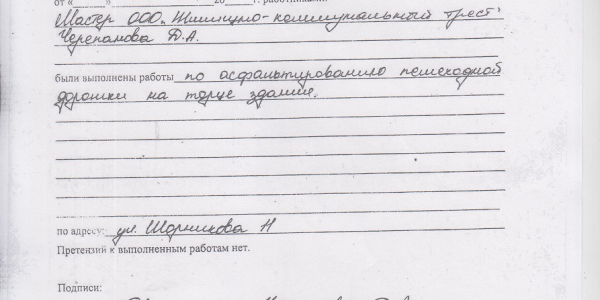 от «      »            20      г. работниками:
Мастер ООО „Жилищно-коммунальный трест"
Черепанова Д.А.
были выполнены работы по асфальтированию пешеходной
дорожки на торце здания.
по адресу: ул. Шорникова
Претензий к выполненным работам нет.
Подписи: